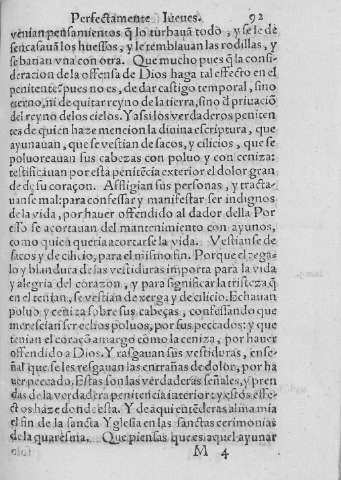 Perfectamente Iueues. 92
venian pensamientos q̃ lo turbauã todo, y se le dẽ
sencasauã los huessos, y le temblauan las rodillas, y
se batian vna con otra. Que mucho pues q̃ la consi-
deracion de la offensa de Dios haga tal effecto en el
penitente? pues no es, de dar castigo temporal, sino
eterno, nĩ de quitar reyno de la tierra, sino d̃ priuaciõ
del reyno de los cielos. Y assi los verdaderos peniten
tes de quien haze mencion la diuina escriptura, que
ayunauan, que se vestian de sacos, y cilicios, que se
poluoreauan sus cabezas con poluo y con ceniza:
testificáuan por esta penitẽcia exterior el dolor gran
de de su coraçon. Affligian sus personas, y tracta-
uanse mal: para confessar y manifestar ser indignos
de la vida, por hauer offendido al dador della Por
esso se acortauan del mantenimiento con ayunos,
como quien queria acortarse la vida. Vestianse de
sacos y de cilicio, para el mismo fin. Porque el rega-
lo y blandura de las vestiduras importa para la vida
y alegria del corazon, y para significar la tristeza q̃
en el tenian, se vestian de xerga y de cilicio. Echauan
poluo y ceniza sobre sus cabeças, confessando que
merescian ser echos poluos, por sus peccados: y que
tenian el coraçõ amargo como la ceniza, por hauer
offendido a Dios. Y rasgauan sus vestiduras, en se-
ñal que se les resgauan las entrañas de dolor, por ha
uer peccado. Estas son las verdaderas señales, y pren
das de la verdadera penitencia interior: y estos effe-
ctos haze donde esta. Y de aqui entẽderas alma mia
el fin de la sancta Yglesia en las sanctas cerimonias
de la quaresma. Que piensas que es aquel ayunar
M 4